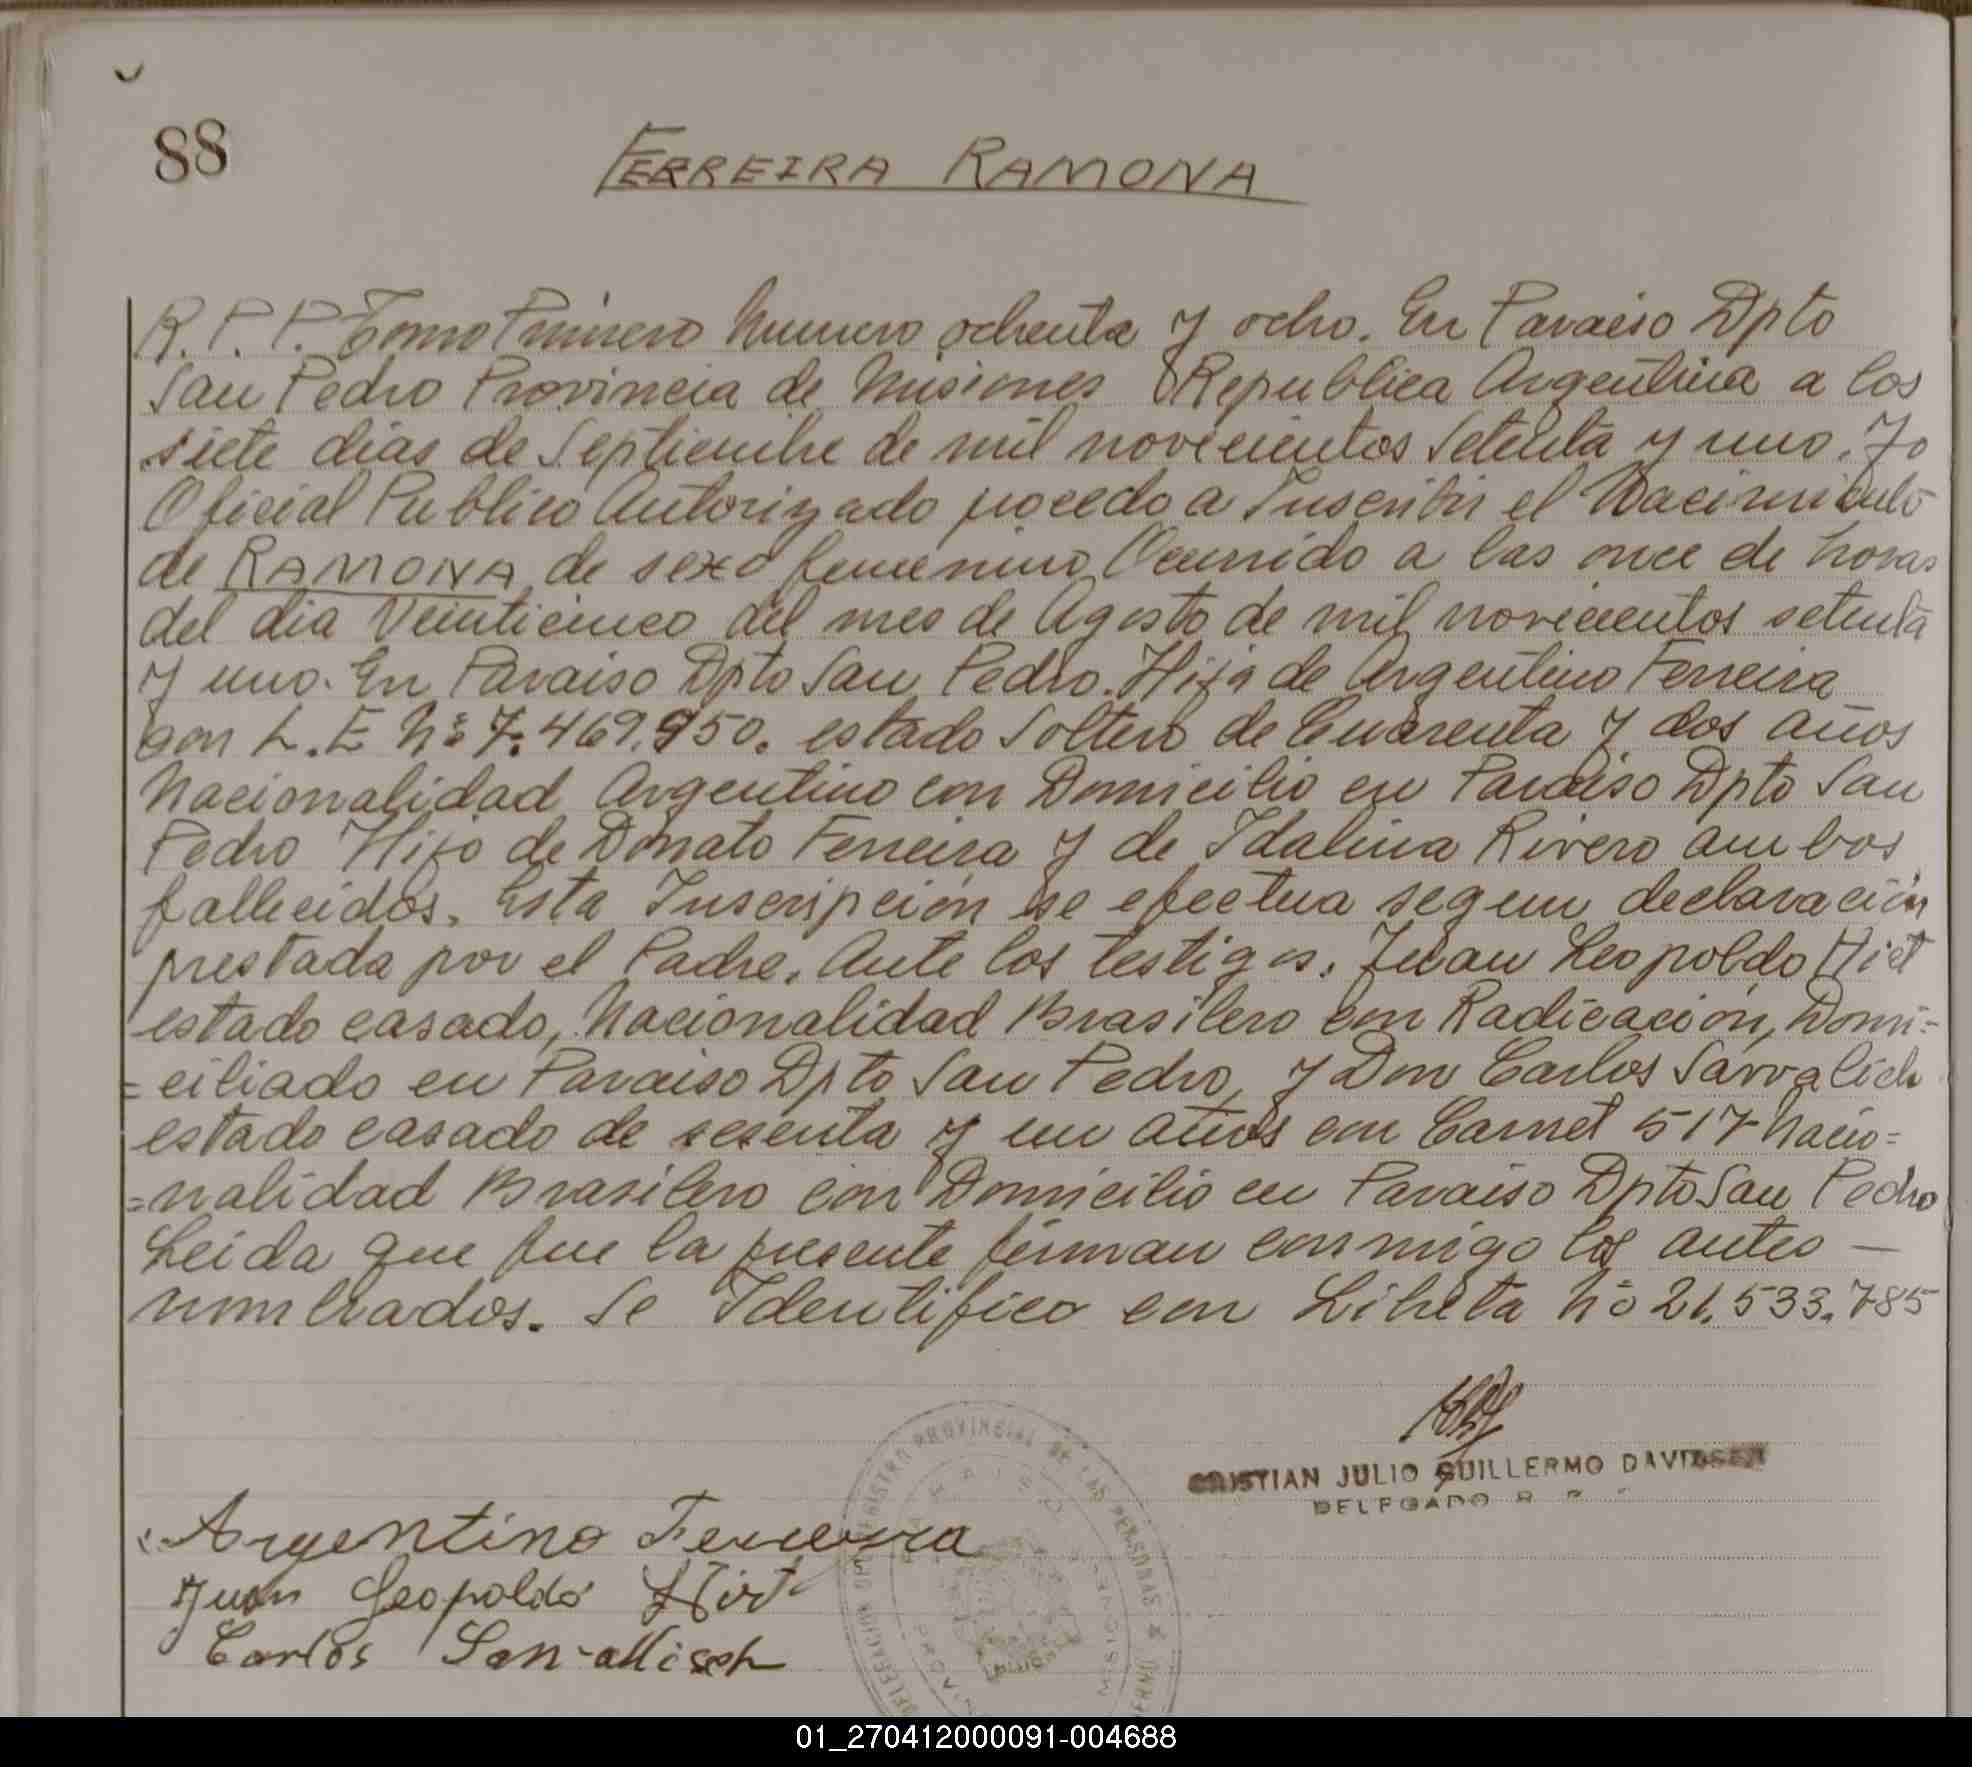 88
FERREIRA RAMONA
R.P.P. Tomo Primero Numero ochenta y ocho. En Paraiso Dpto
San Pedro Provincia de Misiones Republica Argentina a los
siete dias de Septiembre de mil novecientos setenta y uno. Yo
Oficial Publico Autorizado procedo a Inscribir el Nacimiento
de RAMONA de sexo femenino Ocurrido a las once de horas
del dia Veinticinco del mes de Agosto de mil novecientos setenta
y uno. En Paraiso Dpto San Pedro. Hija de Argentino Ferreira
con L.E Nº 7.469.950. estado Soltero de Cuarenta y dos años
Nacionalidad Argentino con Domicilio en Paraiso Dpto San
Pedro Hijo de Donato Ferreira y de Idalina Rivero ambos
fallecidos. Esta Inscripción se efectua segun declaración
prestada por el Padre. Ante los testigos. Juan Leopoldo
estado casado, Nacionalidad Brasilero con Radicación, Domi-
-ciliado en Paraiso Dpto San Pedro, y Don Carlos
estado casado de sesenta y un años con Carnet 517 Nacio=
=nalidad Brasilero con Domicilio en Paraiso Dpto San Pedro
Leida que fue la presente firman conmigo los antes —
nombrados. Se Identifico con Libreta Nº 21.533.785
CRISTIAN JULIO GUILLERMO DAVIDSEN
DELEGADO R. P.
Argentino Ferreira
Juan Leopoldo
Carlos
REGISTRO PROVINCIAL DE LAS PERSONAS
01_270412000091-004688